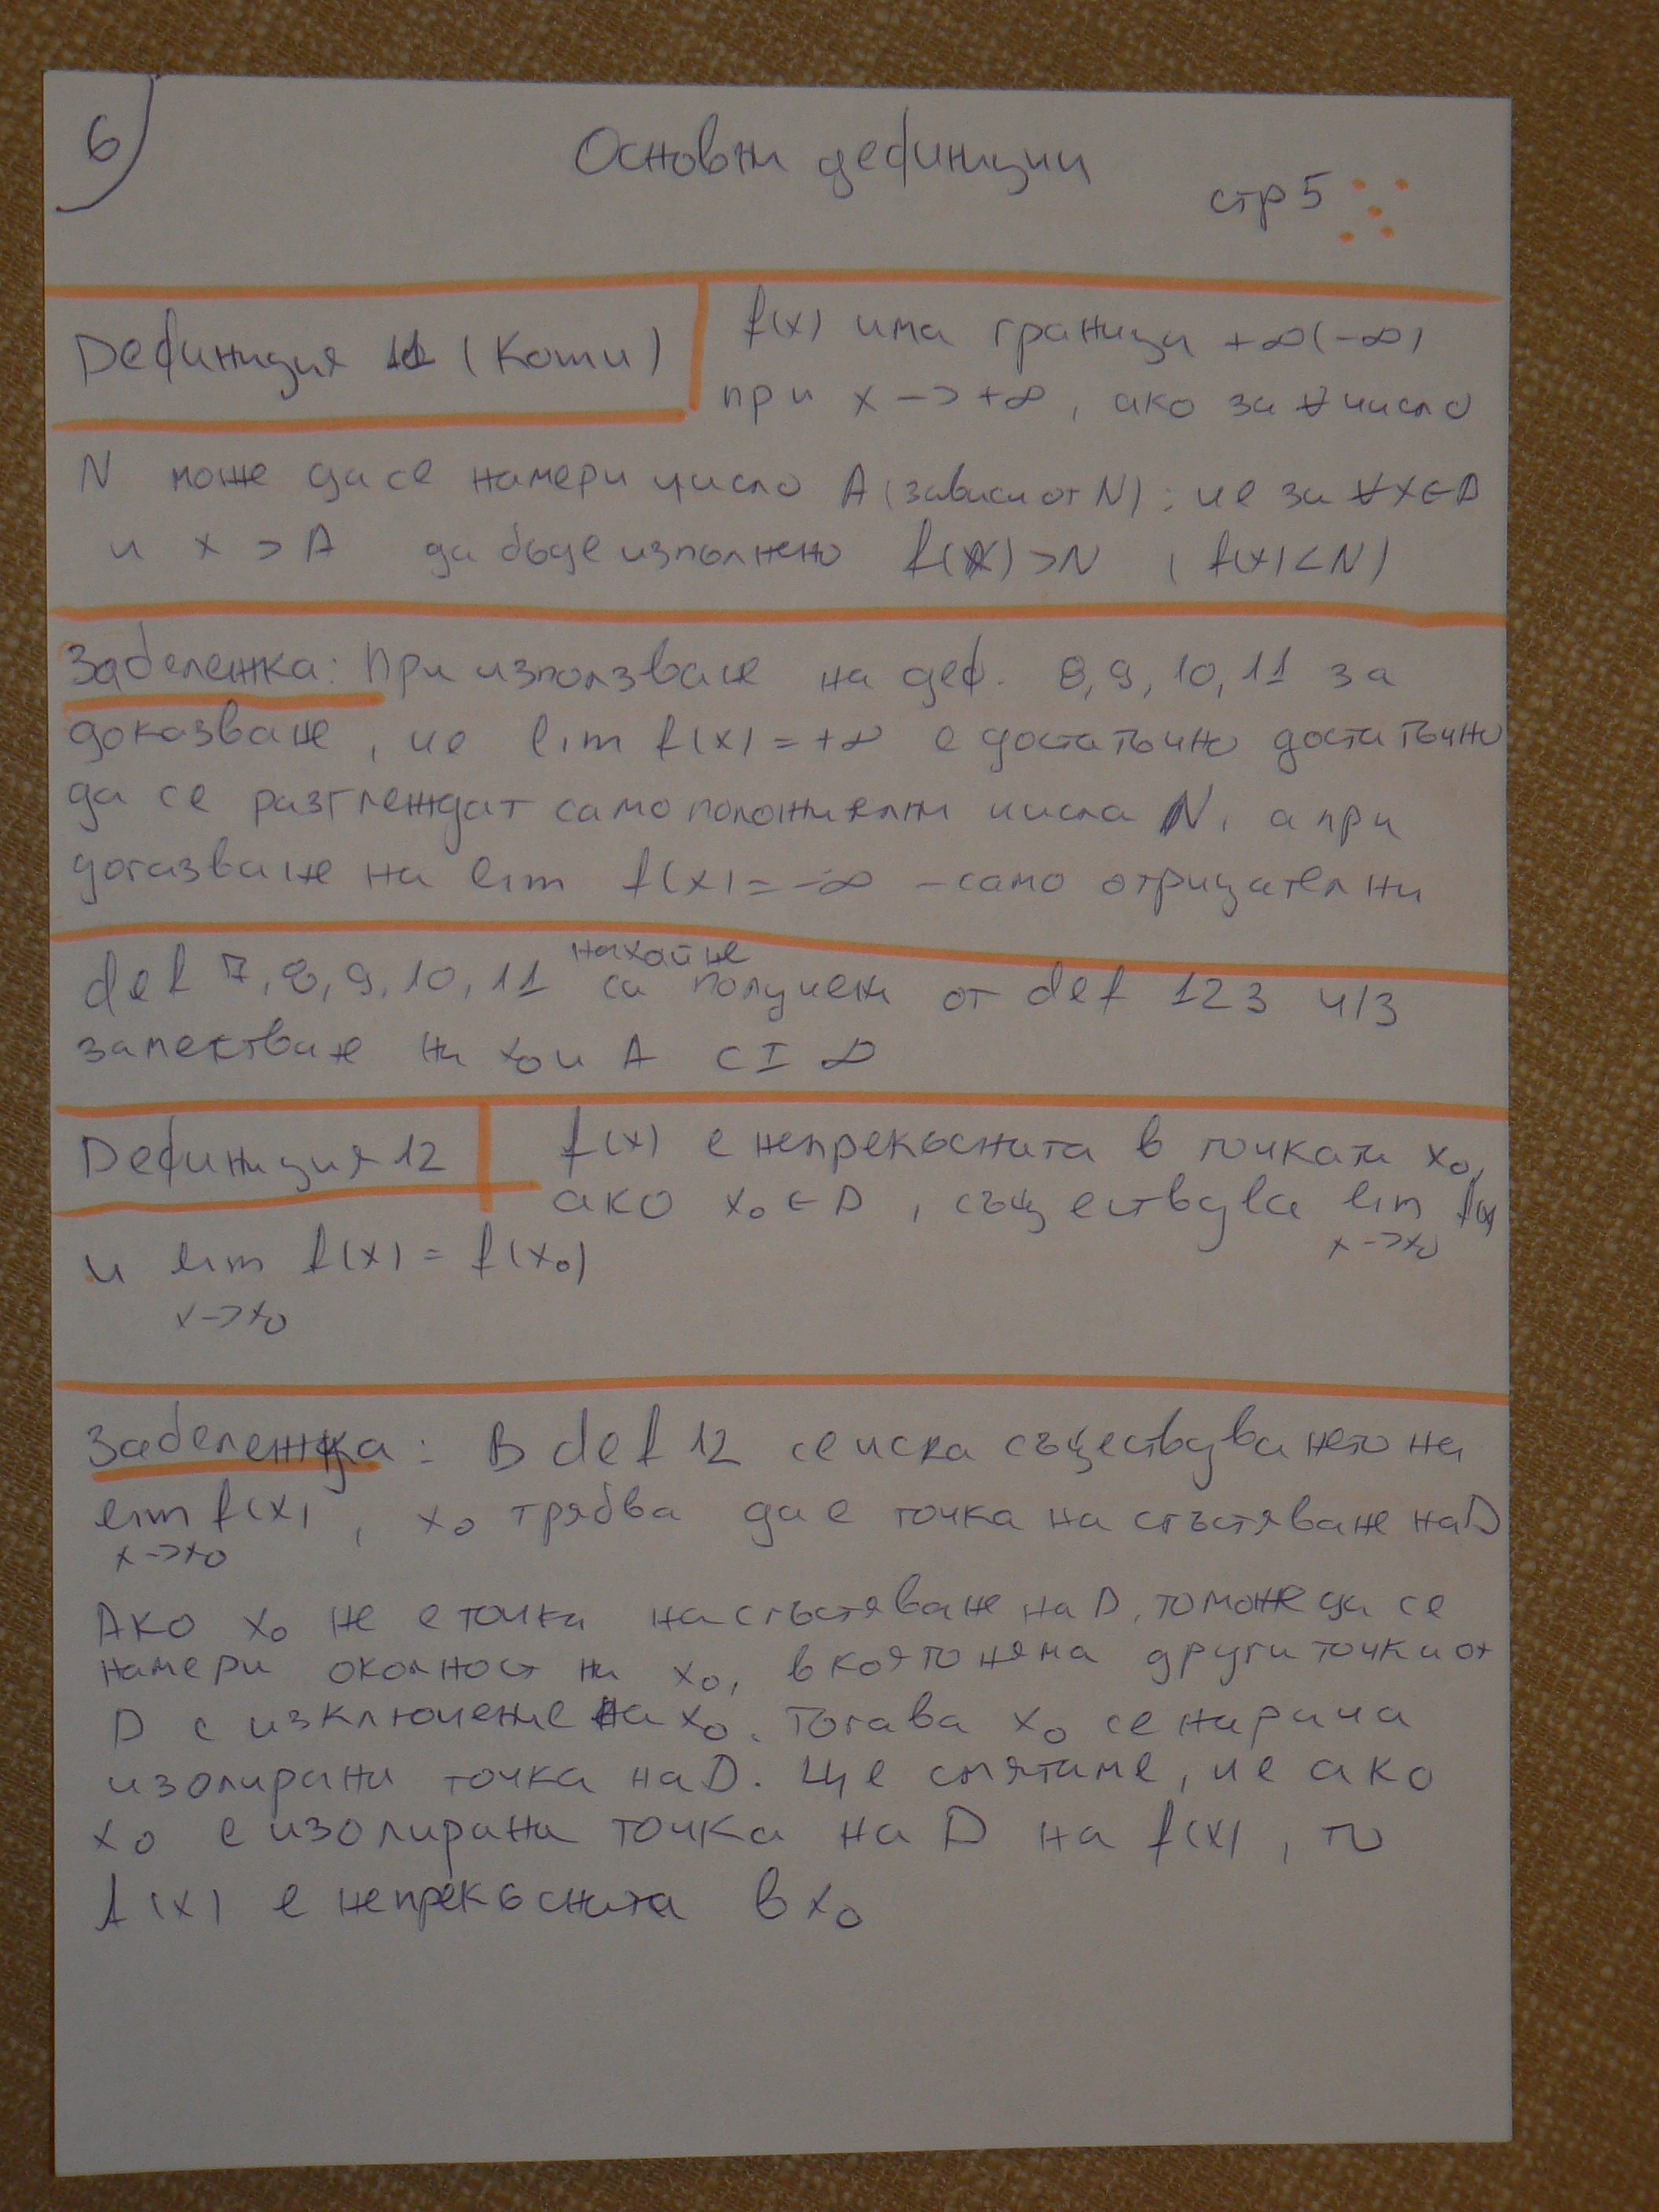 6)
Основни дефиниции
стр 5
Дефиниция 11 (Коши)
f(x) има граници +∞(-∞)
при x -> +∞, ако за ∀ число
N може да се намери число A (зависи от N), че за ∀ x ∈ D
и x > A да бъде изпълнено f(x) > N (f(x) < N)
Забележка: При използване на деф. 8, 9, 10, 11 за
доказване, че lim f(x) = +∞ е достатъчно достатъчно
да се разглеждат само положителни числа N, а при
доказване на lim f(x) = -∞ - само отрицателни
на Хайне
def 7, 8, 9, 10, 11 са получени от def 1 2 3 ч/з
заместване на x₀ и A с ± ∞
Дефиниция 12
f(x) е непрекъсната в точката x₀,
ако x₀ ∈ D, съществува lim f(x)
x -> x₀
и lim f(x) = f(x₀)
x -> x₀
Забележка: В def 12 се иска съществуването на
lim f(x), x₀ трябва да е точка на сгъстяване на D
x -> x₀
Ако x₀ не е точка на сгъстяване на D, то може да се
намери околност на x₀, в която няма други точки от
D с изключение на x₀. Тогава x₀ се нарича
изолирана точка на D. Ще смятаме, че ако
x₀ е изолирана точка на D на f(x), то
f(x) е непрекъсната в x₀